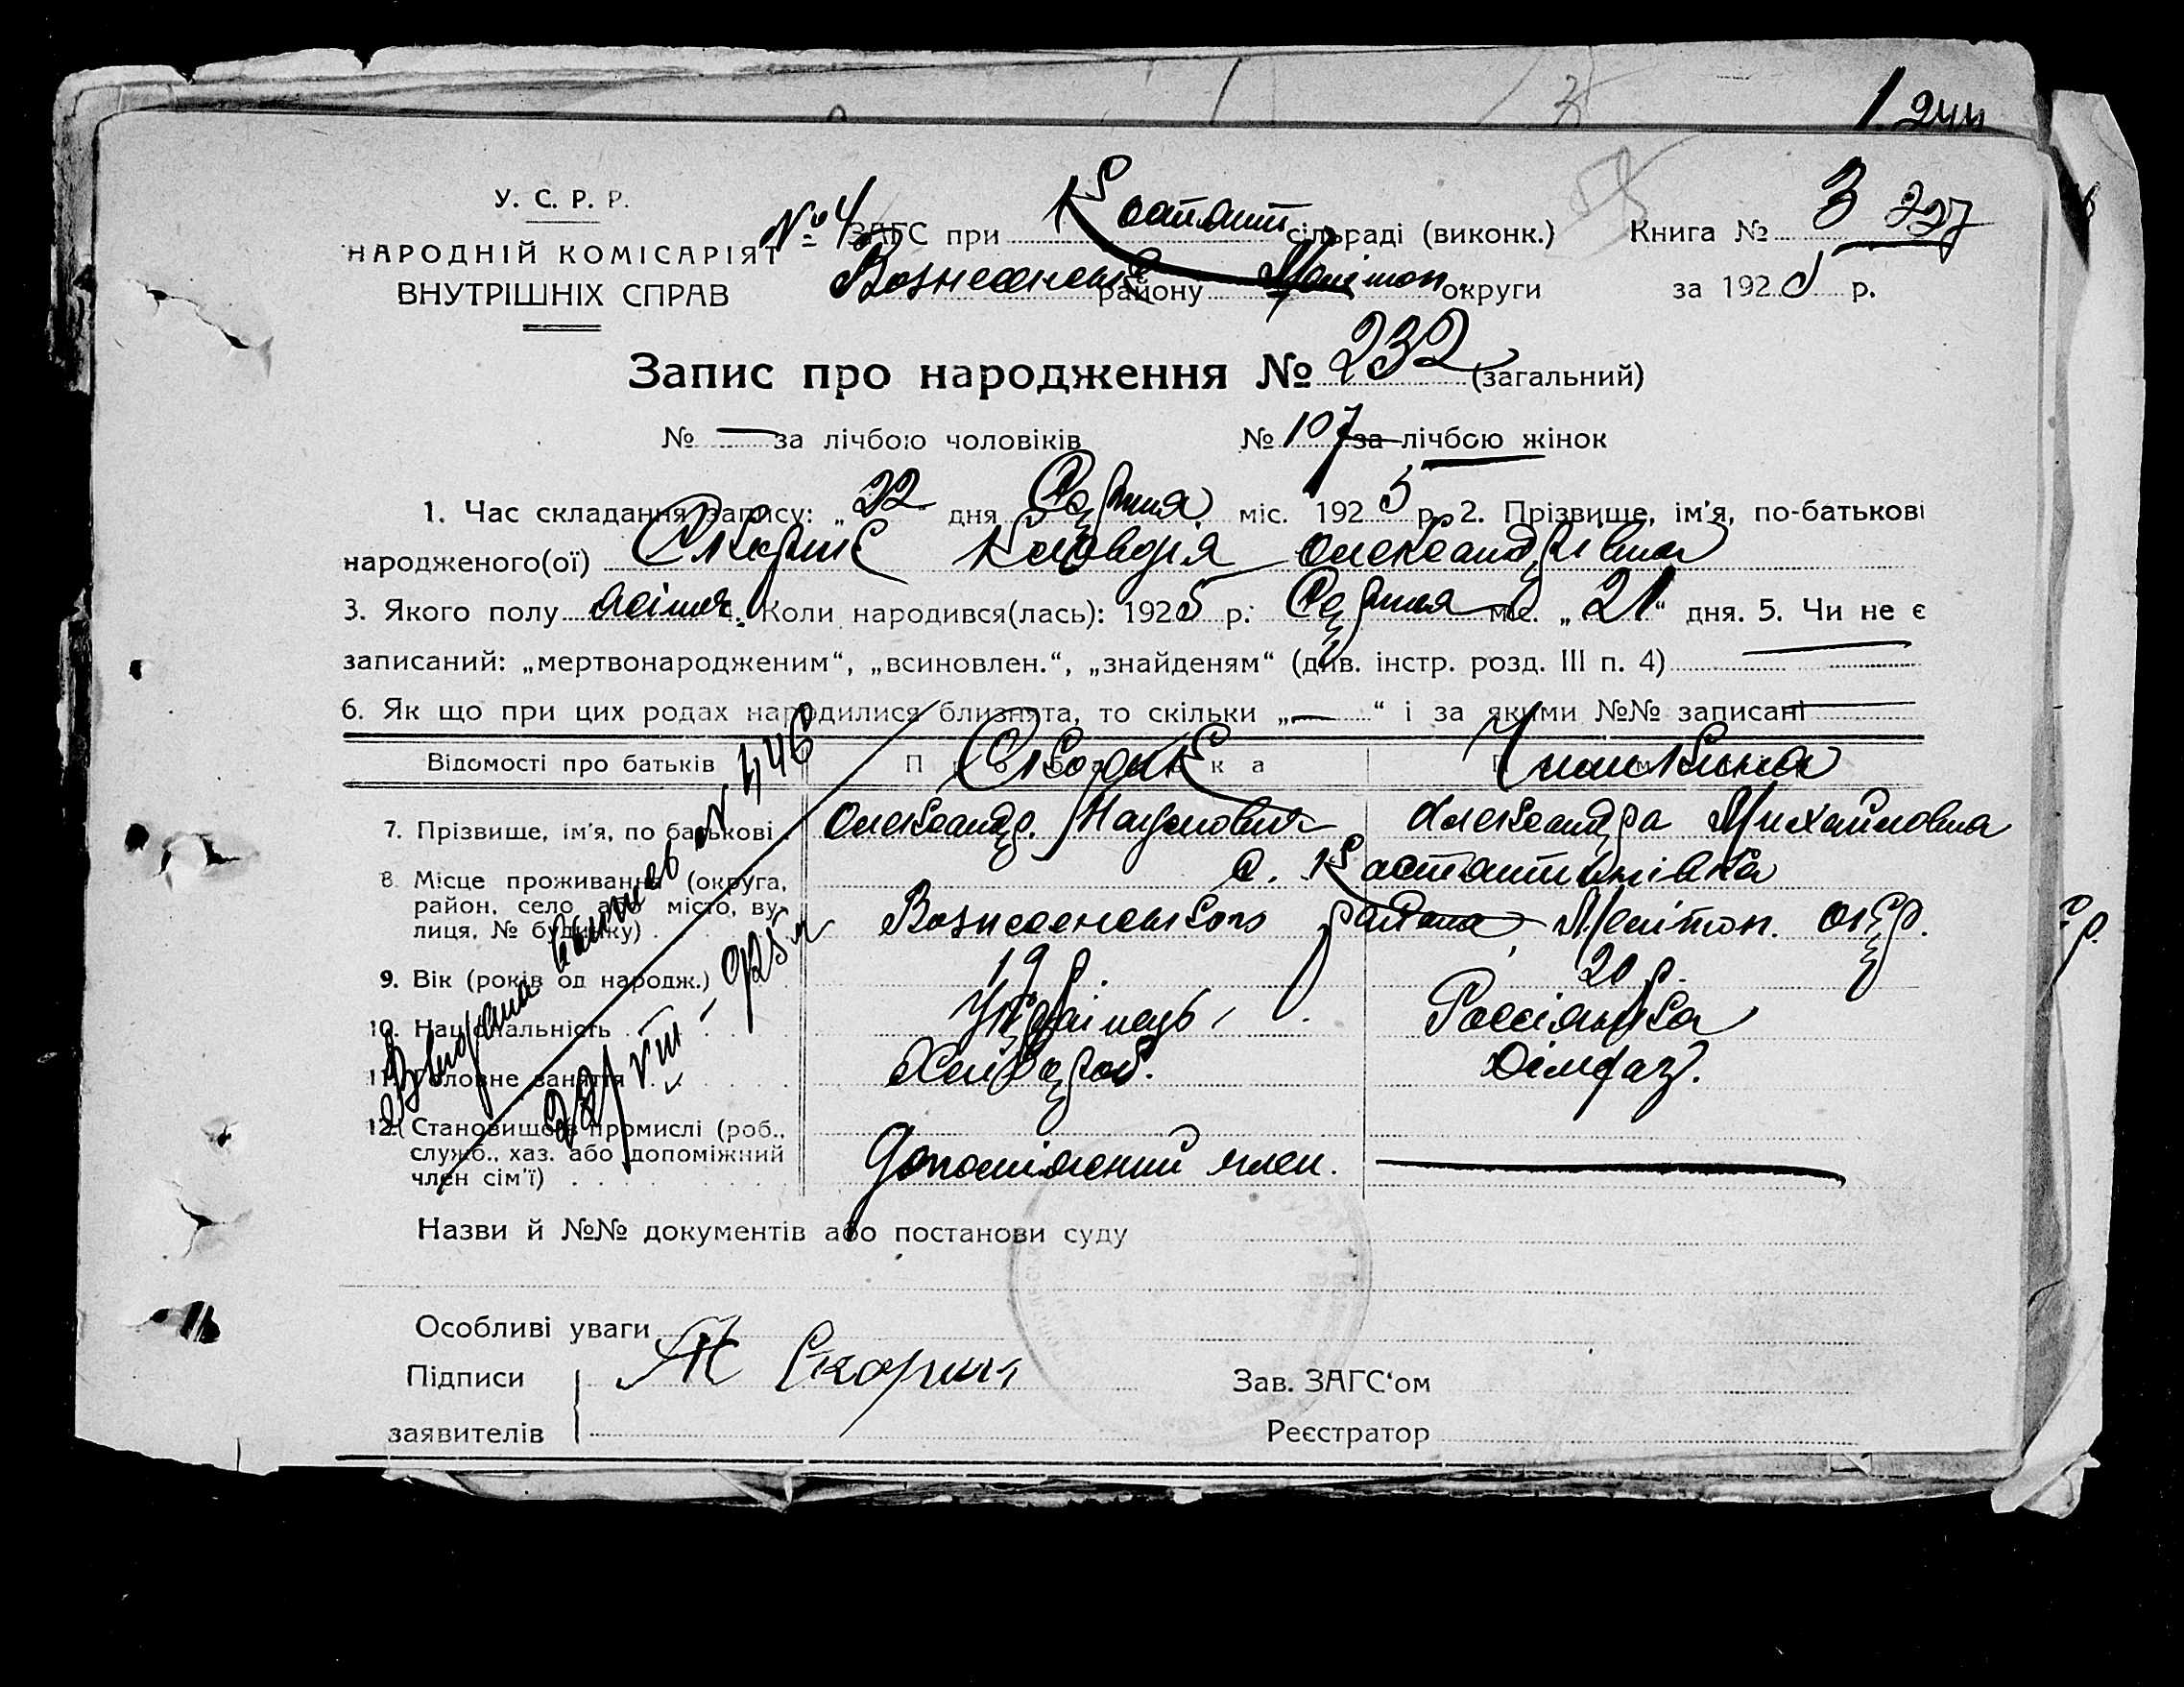 1 244
У. С. Р. Р.
НАРОДНІЙ КОМІСАРІЯТ
ВНУТРІШНІХ СПРАВ
№ 4 ЗАГС при Костянт сільраді (виконк.) Книга № 3 227
Вознесенськ району Мелітоп. округи за 1925 р.
Запис про народження № 232 (загальний)
№ — за лічбою чоловіків № 107 за лічбою жінок
1. Час складання запису: „ 22 дня Серпня міс. 1925 р. 2. Прізвище, ім'я, по-батькові
народженого(ої) Клавдія Олександрівна
3. Якого полу жіноч. Коли народився(лась): 1925 р: Серпня міс. „ 21 “ дня. 5. Чи не є
записаний: „мертвонародженим“, „всиновлен.“, „знайденям“ (див. інстр. розд. III п. 4) —
6. Як що при цих родах народилися близнята, то скільки „—“ і за якими №№ записані —
Відомості про батьків
7. Прізвище, ім'я, по батькові Олександр. Наумович Александра Михайловна
8. Місце проживання (округа, район, село або місто, вулиця, № будинку) с. Костянтинівка
Вознесенського района, Мелітоп. окр.
9. Вік (років од народж.) 19 р. 20 р.
10. Національність Українець Россіянка
11. Головне заняття Хлібороб. Домгаз.
12. Становище в промислі (роб., служб., хаз. або допоміжний член сім'ї) Допоміжний член. —
№ 446
22/VIII – 925 р
Назви й №№ документів або постанови суду
Особливі уваги
Підписи Зав. ЗАГС‘ом
заявителів Реєстратор